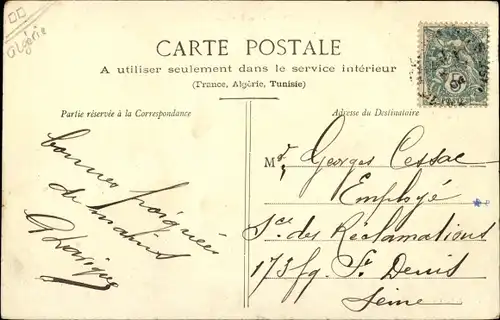 Algérie
CARTE POSTALE
A utiliser seulement dans le service intérieur
(France, Algérie, Tunisie)
Partie réservée à la Correspondance
Adresse du Destinataire
bonnes poignées
de mains
Mr Georges Cessac
Employé
Sce des Réclamations
173 fg. St Denis
Seine